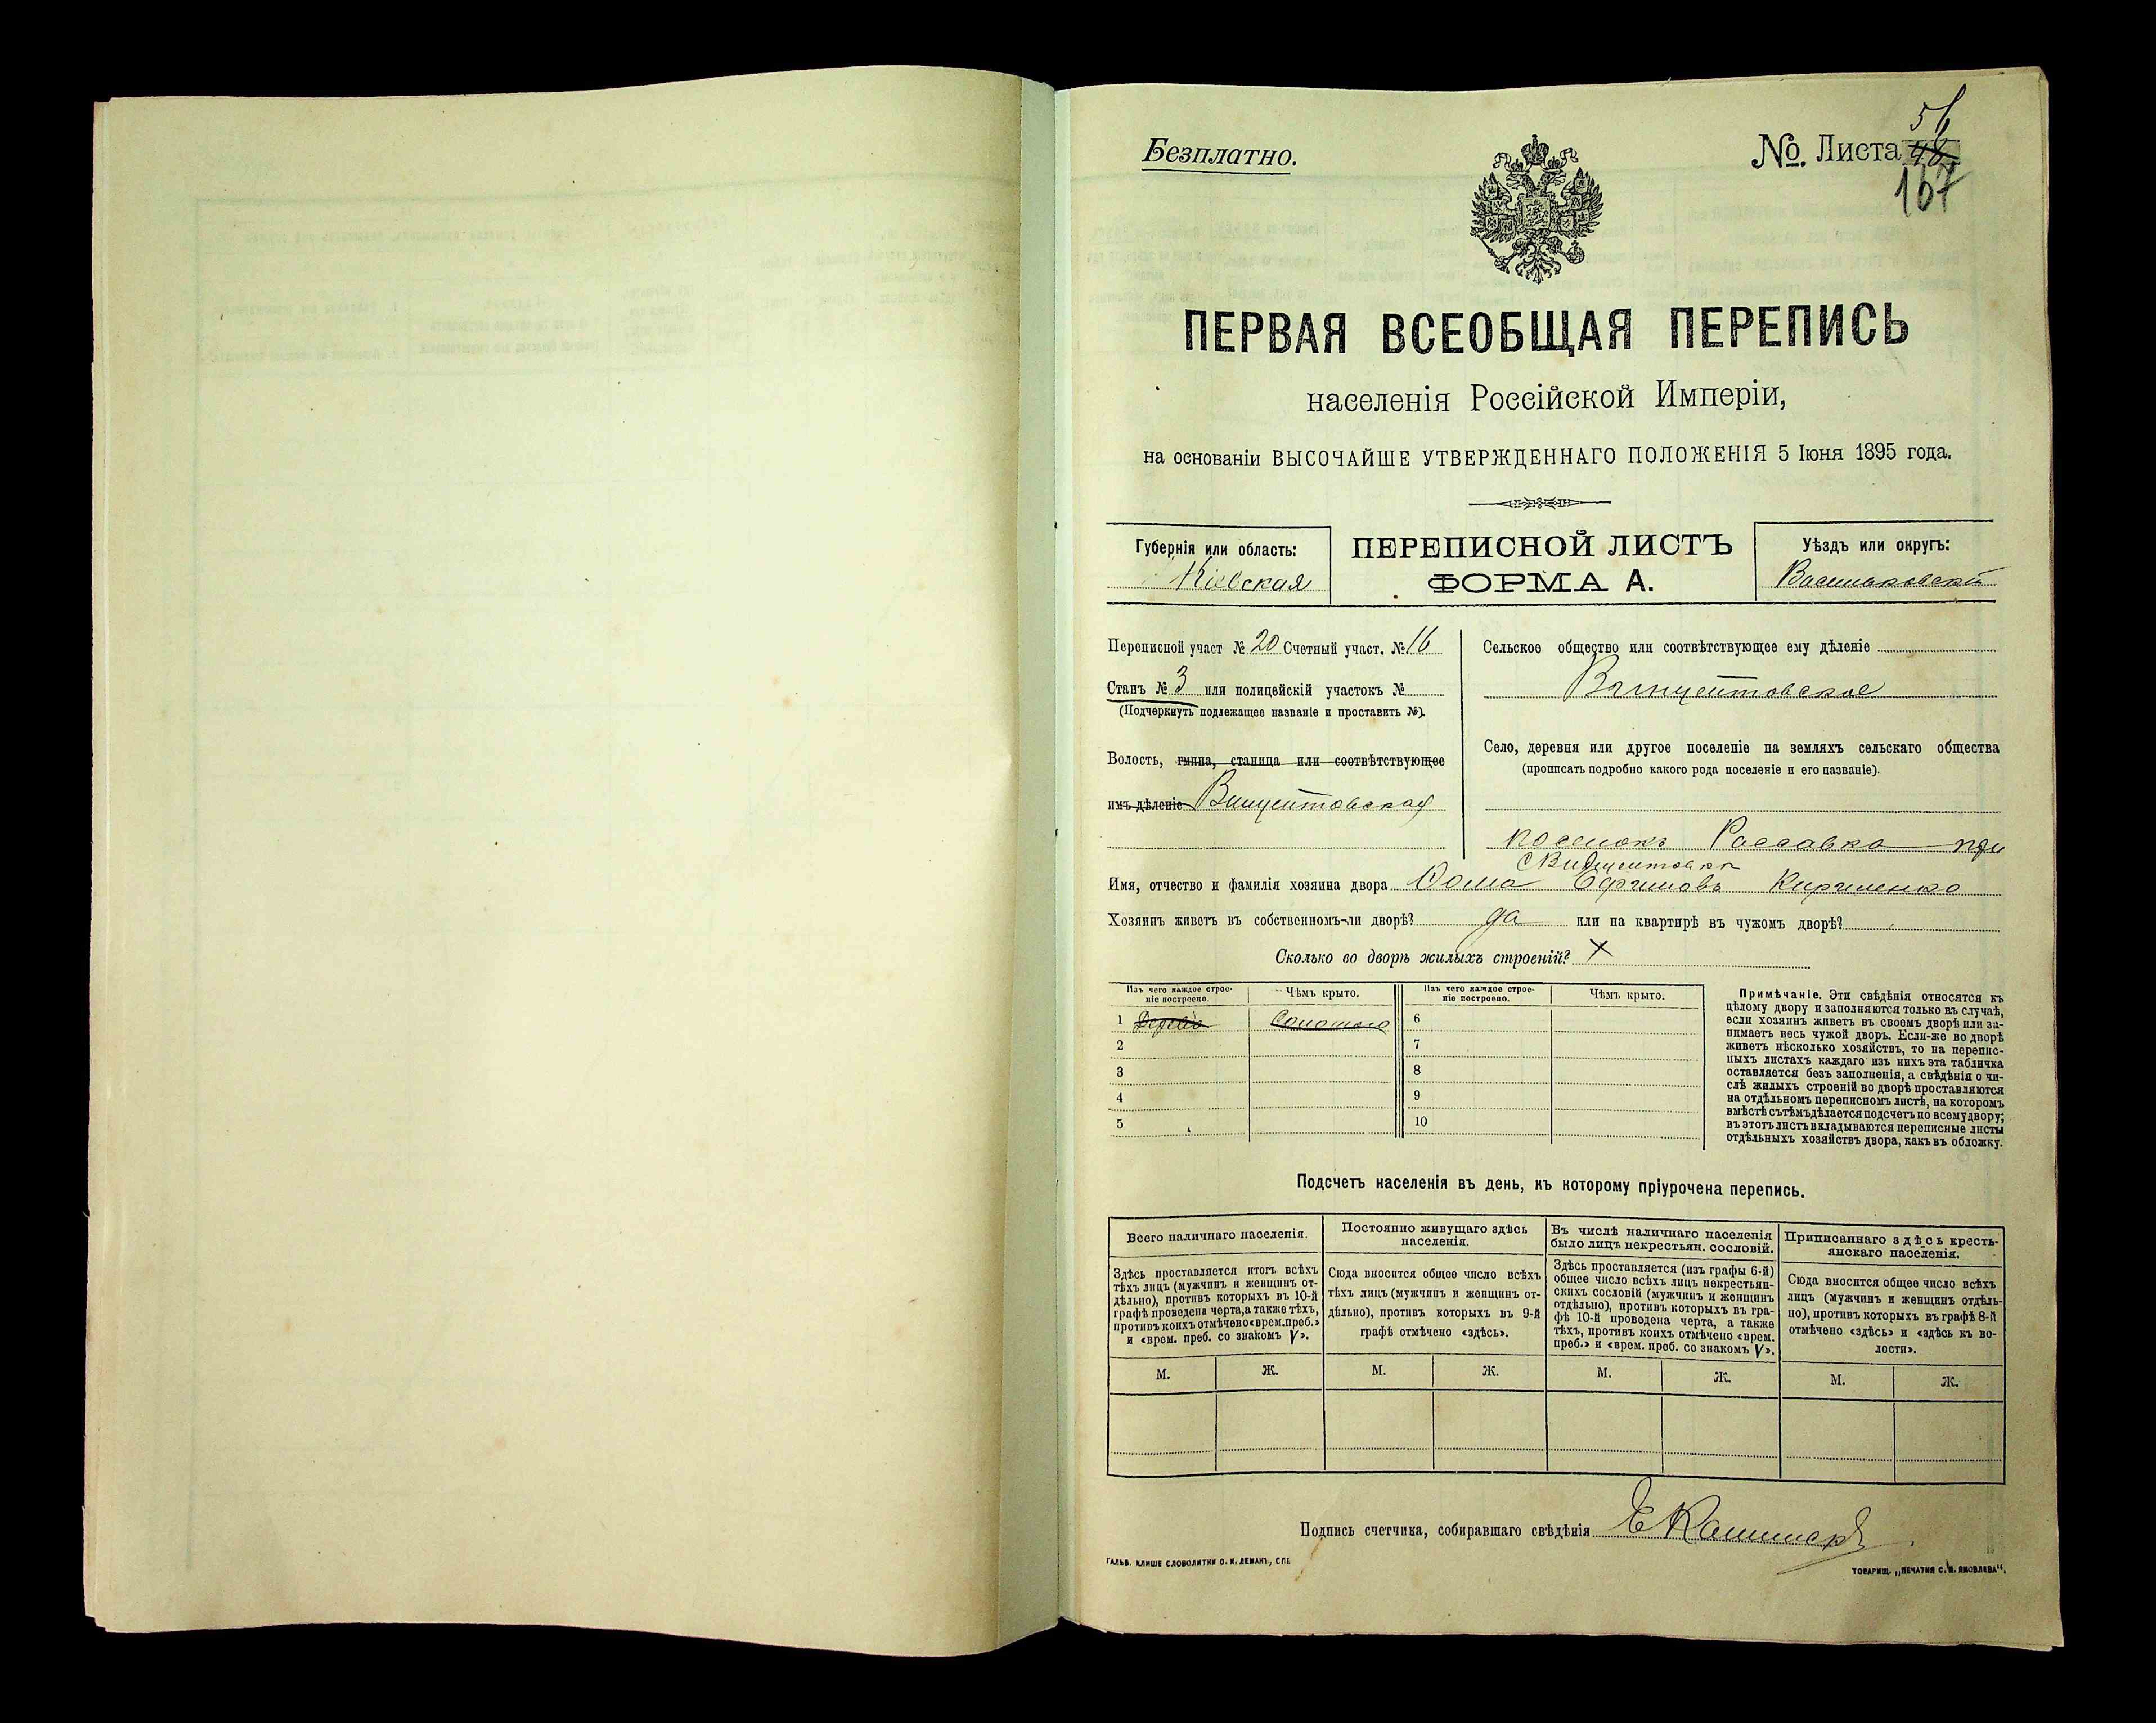 Безплатно.
№. Листа 56
167
ПЕРВАЯ ВСЕОБЩАЯ ПЕРЕПИСЬ
населенія Россійской Имперіи,
на основаніи ВЫСОЧАЙШЕ УТВЕРЖДЕННАГО ПОЛОЖЕНІЯ 5 Іюня 1895 года.
Губернія или область:
Кіевская
ПЕРЕПИСНОЙ ЛИСТЪ
ФОРМА А.
Уѣздъ или округъ:
Васильковскій
Переписной участ № 20 Счетный участ. № 16
Станъ № 3 или полицейскій участокъ №
(Подчеркнуть подлежащее названіе и проставить №).
Волость, гмина, станица или соотвѣтствующее
имъ дѣленіе Винцентовская
Сельское общество или соотвѣтствующее ему дѣленіе
Винцентовское
Село, деревня или другое поселеніе на земляхъ сельскаго общества
(прописать подробно какого рода поселеніе и его названіе).
поселокъ Россавка при
с Винцентовки
Имя, отчество и фамилія хозяина двора Фома Ефимовъ Кириленко
Хозяинъ живетъ въ собственномъ-ли дворѣ? да или на квартирѣ въ чужомъ дворѣ?
Сколько во дворѣ жилыхъ строеній? X
Изъ чего каждое строе-
ніе построено.
Чѣмъ крыто.
Изъ чего каждое строе-
ніе построено.
Чѣмъ крыто.
1 Дерево Соломою 6
2 7
3 8
4 9
5 10
Примѣчаніе. Эти свѣдѣнія относятся къ
цѣлому двору и заполняются только въ случаѣ,
если хозяинъ живетъ въ своемъ дворѣ или за-
нимаетъ весь чужой дворъ. Если-же во дворѣ
живетъ нѣсколько хозяйствъ, то на перепис-
ныхъ листахъ каждаго изъ нихъ эта табличка
оставляется безъ заполненія, а свѣдѣнія о чи-
слѣ жилыхъ строеній во дворѣ проставляются
на отдѣльномъ переписномъ листѣ, на которомъ
вмѣстѣ съ тѣмъ дѣлается подсчетъ по всему двору;
въ этотъ листъ вкладываются переписные листы
отдѣльныхъ хозяйствъ двора, какъ въ обложку.
Подсчетъ населенія въ день, къ которому пріурочена перепись.
Всего наличнаго населенія.
Здѣсь проставляется итогъ всѣхъ
тѣхъ лицъ (мужчинъ и женщинъ от-
дѣльно), противъ которыхъ въ 10-й
графѣ проведена черта, а также тѣхъ,
противъ коихъ отмѣчено «врем. преб.»
и «врем. преб. со знакомъ V».
М. Ж.
Постоянно живущаго здѣсь
населенія.
Сюда вносится общее число всѣхъ
тѣхъ лицъ (мужчинъ и женщинъ от-
дѣльно), противъ которыхъ въ 9-й
графѣ отмѣчено «здѣсь».
М. Ж.
Въ числѣ наличнаго населенія
было лицъ некрестьян. сословій.
Здѣсь проставляется (изъ графы 6-й)
общее число всѣхъ лицъ некрестьян-
скихъ сословій (мужчинъ и женщинъ
отдѣльно), противъ которыхъ въ гра-
фѣ 10-й проведена черта, а также
тѣхъ, противъ коихъ отмѣчено «врем.
преб.» и «врем. преб. со знакомъ V».
М. Ж.
Приписаннаго здѣсь кресть-
янскаго населенія.
Сюда вносится общее число всѣхъ
лицъ (мужчинъ и женщинъ отдѣль-
но), противъ которыхъ въ графѣ 8-й
отмѣчено «здѣсь» и «здѣсь къ во-
лости».
М. Ж.
Подпись счетчика, собиравшаго свѣдѣнія
ГАЛЬВ. КЛИШЕ СЛОВОЛИТНИ О. И. ЛЕМАНЪ, СПБ.
ТОВАРИЩ. „ПЕЧАТНЯ С. П. ЯКОВЛЕВА“.